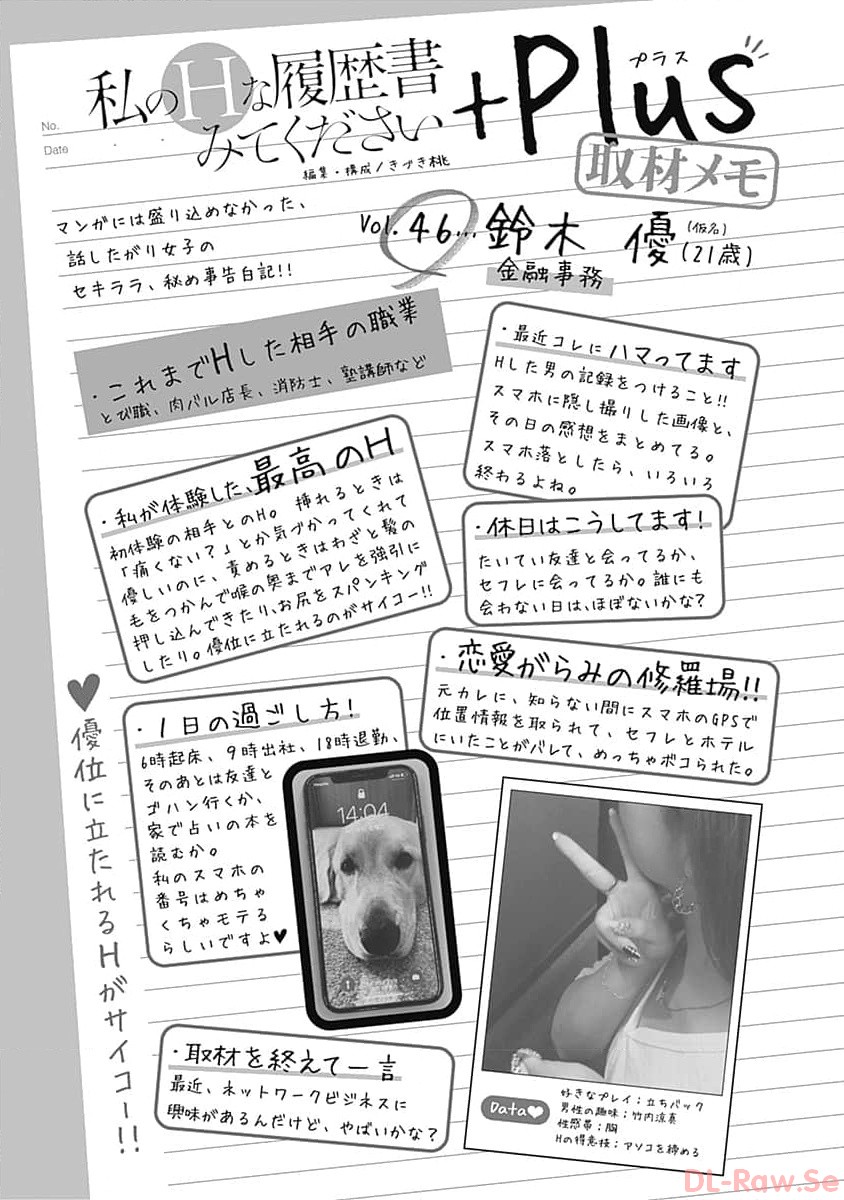 No.
Date
私のHな履歴書
みてください
+Plus
プラス
編集・構成/きづき桃
取材メモ
マンガには盛り込めなかった、
話したがり女子の
セキララ、秘め事告白記!!
Vol.46…鈴木 優(仮名)(21歳)
金融事務
・これまでHした相手の職業
とび職、肉バル店長、消防士、塾講師など
・最近コレにハマってます
Hした男の記録をつけること!!
スマホに隠し撮りした画像と、
その日の感想をまとめてる。
スマホ落としたら、いろいろ
終わるよね。
・私が体験した、最高のH
初体験の相手とのH。挿れるときは
「痛くない?」とか気づかってくれて
優しいのに、責めるときはわざと髪の
毛をつかんで喉の奥までアレを強引に
押し込んできたり、お尻をスパンキング
したり。優位に立たれるのがサイコー!!
・休日はこうしてます!
たいてい友達と会ってるか、
セフレに会ってるか。誰にも
会わない日は、ほぼないかな?
・恋愛がらみの修羅場!!
元カレに、知らない間にスマホのGPSで
位置情報を取られて、セフレとホテル
にいたことがバレて、めっちゃボコられた。
♥優位に立たれるHがサイコー!!
・1日の過ごし方!
6時起床、9時出社、18時退勤、
そのあとは友達と
ゴハン行くか、
家で占いの本を
読むか。
私のスマホの
番号はめちゃ
くちゃモテる
らしいですよ♥
14:04
・取材を終えて一言
最近、ネットワークビジネスに
興味があるんだけど、やばいかな?
Data♥
好きなプレイ:立ちバック
男性の趣味:竹内涼真
性感帯:胸
Hの得意技:アソコを締める
DL-Raw.Se